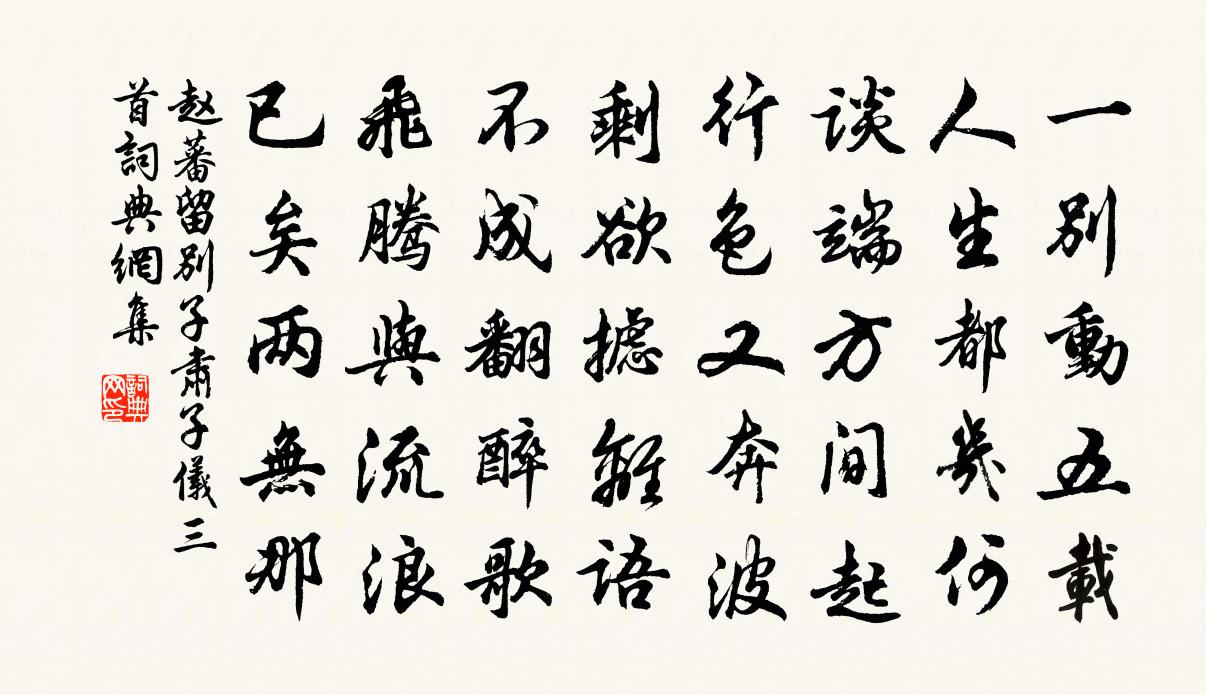 一別動五載
人生都幾何
談端方間起
行色又奔波
剩欲攄離語
不成翻醉歌
飛騰與流浪
已矣兩無那
赵蕃留別子肅子儀三
首詞典網集
詞典
网印